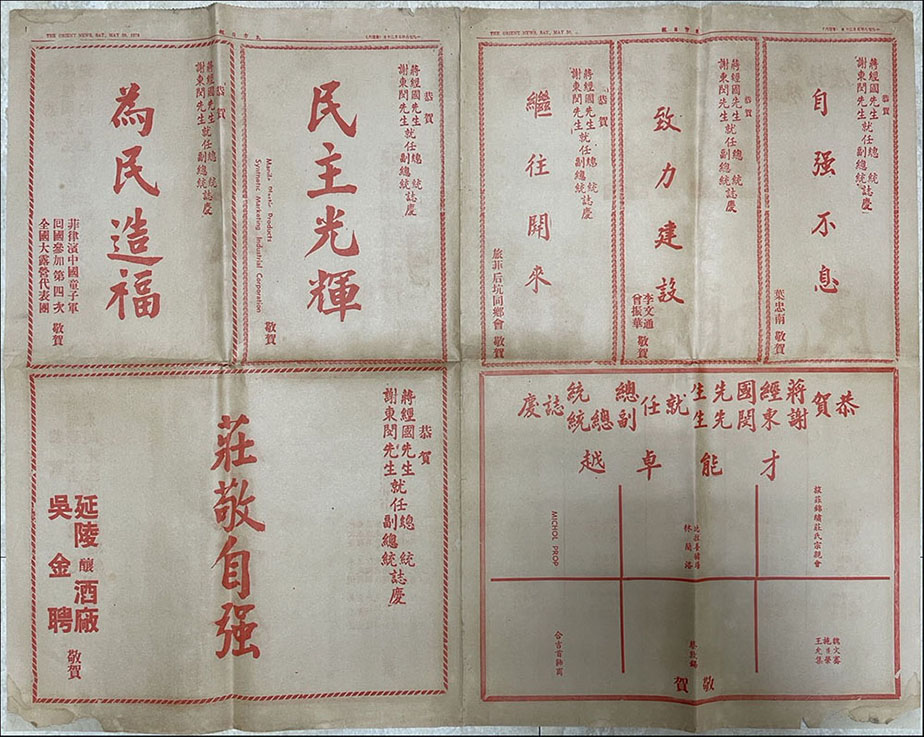 THE ORIENT NEWS, SAT., MAY 20, 1978
THE ORIENT NEWS, SAT., MAY 20,
恭賀
蔣經國先生就任總統誌慶
謝東閔先生就任副總統誌慶
自强不息
葉忠南 敬賀
恭賀
蔣經國先生就任總統誌慶
謝東閔先生就任副總統誌慶
致力建設
李文通
曾振華 敬賀
恭賀
蔣經國先生就任總統誌慶
謝東閔先生就任副總統誌慶
繼往開來
旅菲后坑同鄉會 敬賀
恭賀
蔣經國先生就任總統誌慶
謝東閔先生就任副總統誌慶
民主光輝
Manila Plastic Products
Synthetic Marketing Industrial Corporation
敬賀
恭賀
蔣經國先生就任總統誌慶
謝東閔先生就任副總統誌慶
為民造福
菲律濱中國童子軍
回國參加第四次
全國大露營代表團
敬賀
恭賀
蔣經國先生就任總統誌慶
謝東閔先生就任副總統誌慶
才能卓越
旅菲錦繡莊氏宗親會
MICHOL PROP
合吉首飾
敬賀
恭賀
蔣經國先生就任總統誌慶
謝東閔先生就任副總統誌慶
莊敬自强
延陵釀酒廠
吳金聘
敬賀